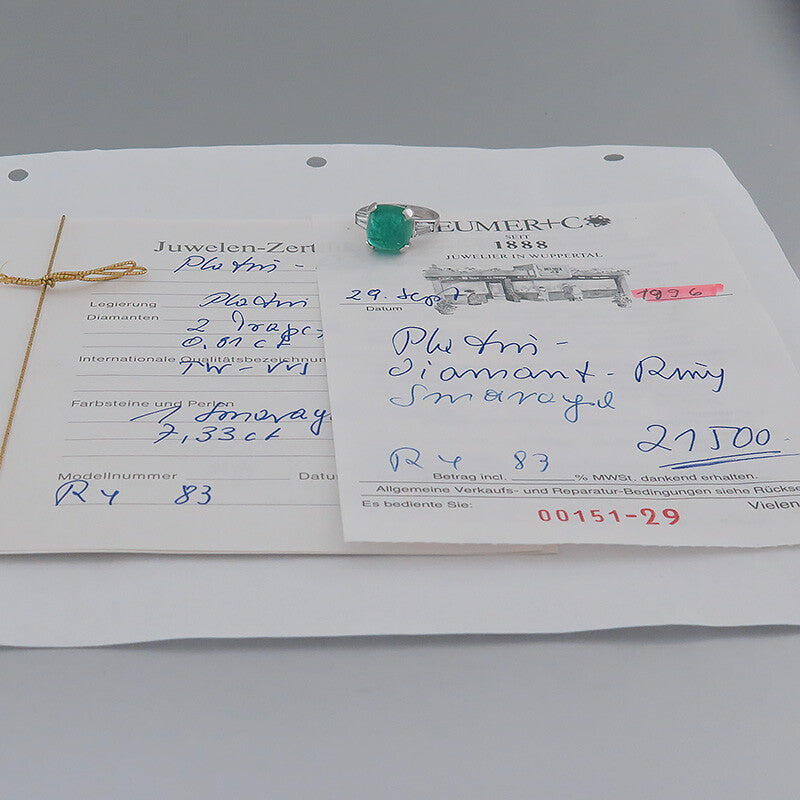 Juwelen-Zert
Platin-
Legierung Platin
Diamanten 2 Trapez
0,61 ct
Internationale Qualitätsbezeichnung
TW-VVS
Farbsteine und Perlen
1 Smaragd
7,33 ct
Modellnummer Datu
R 4 83
EUMER+C
SEIT
1888
JUWELIER IN WUPPERTAL
29. Sept 1996
Datum
Platin-
Diamant-Ring
Smaragd
21500.-
R 4 83
Betrag incl. % MWSt. dankend erhalten.
Allgemeine Verkaufs- und Reparatur-Bedingungen siehe Rückse
Es bediente Sie: 00151-29 Vielen